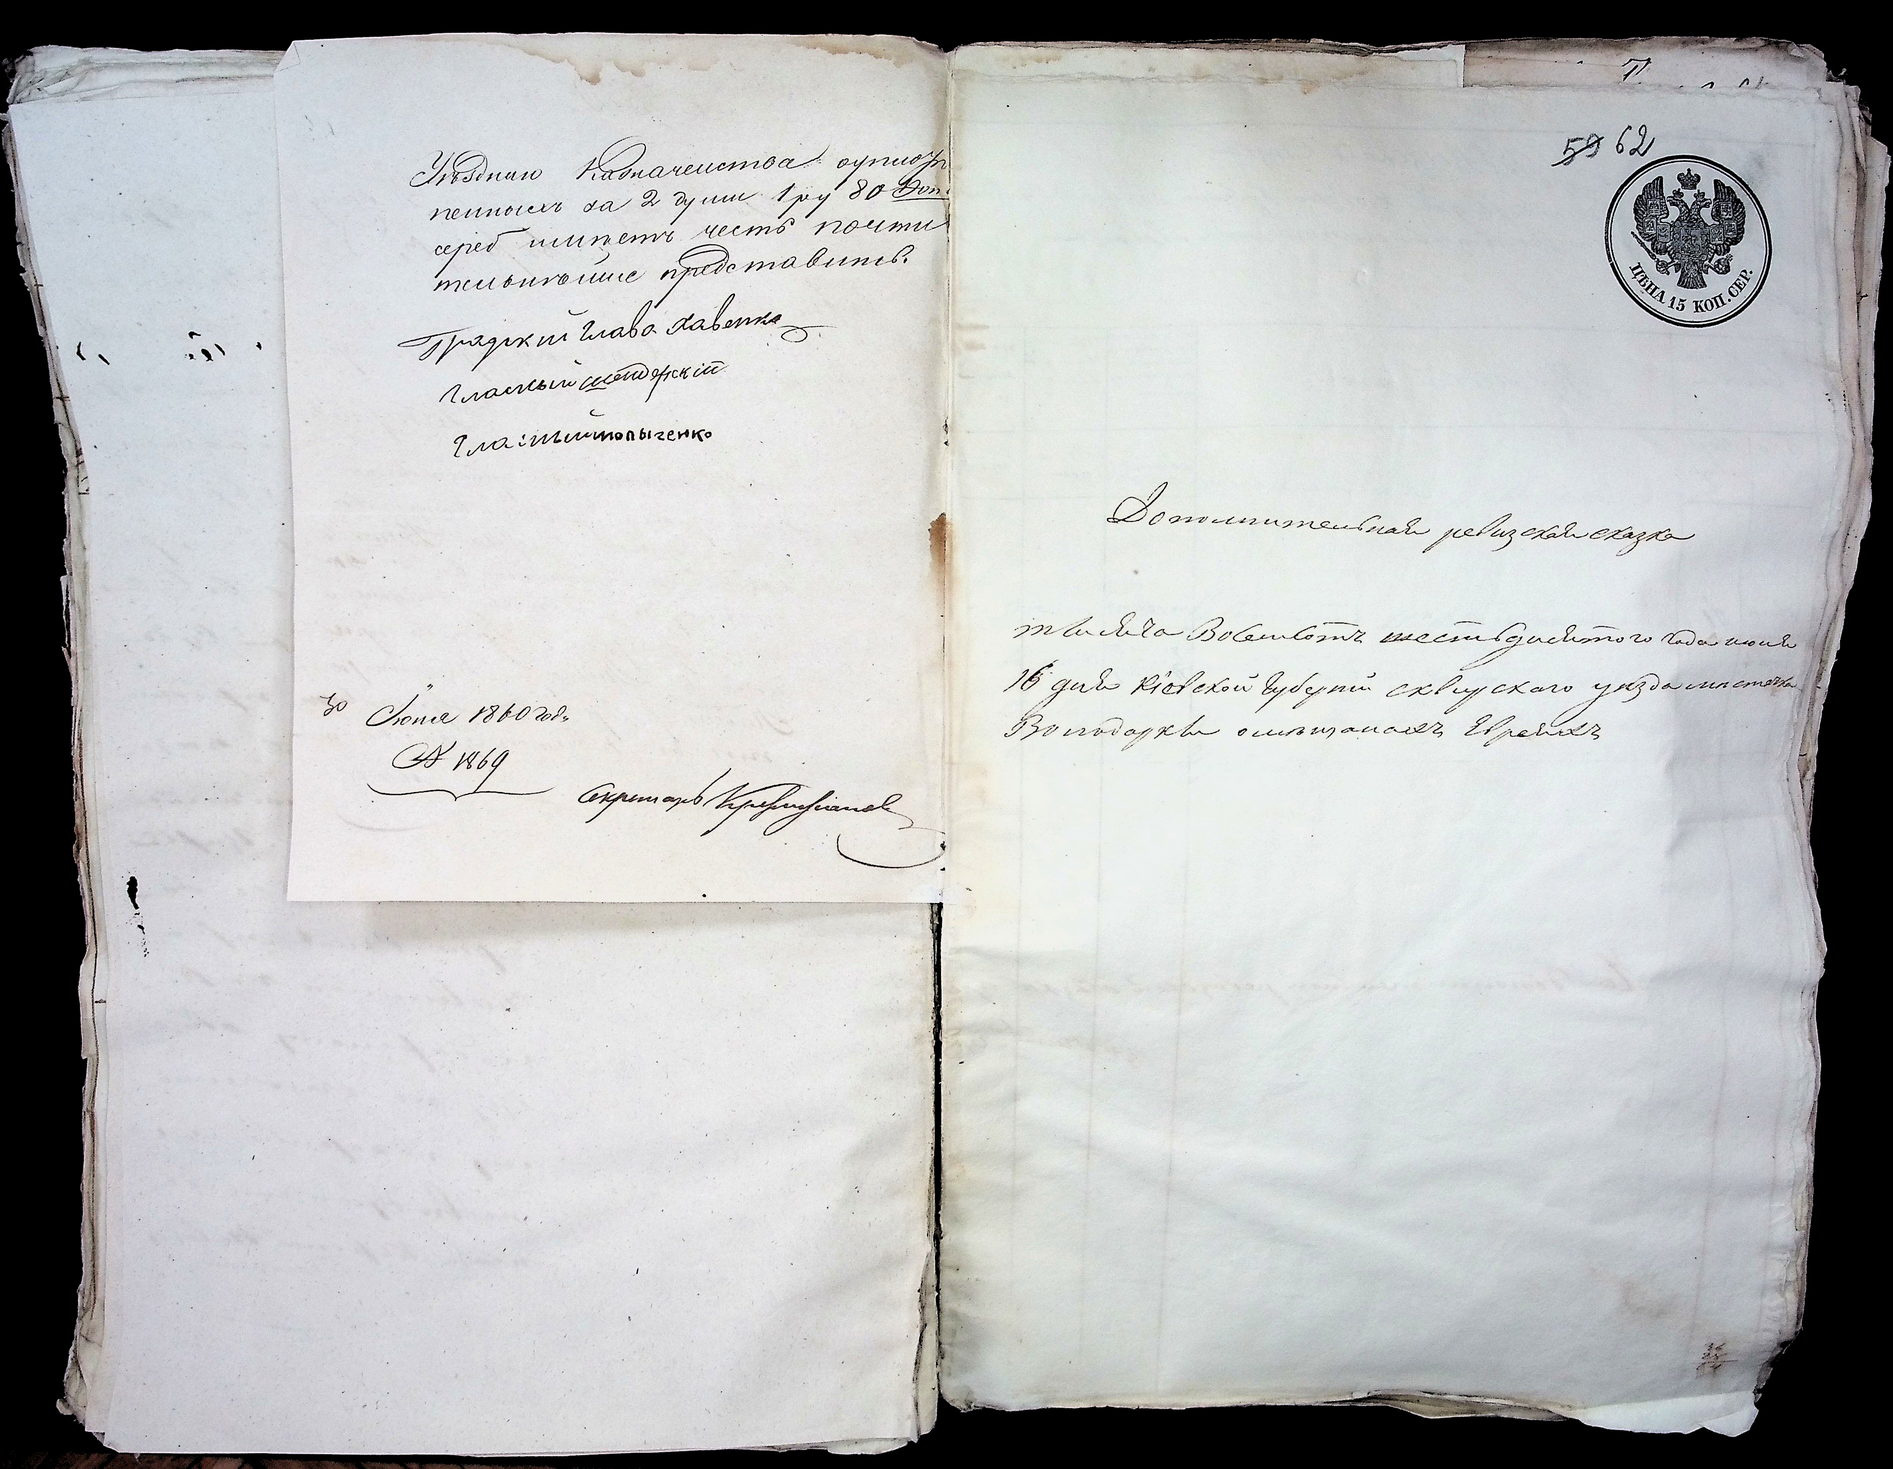 Уѣзднаго Казначейства о уплоче
ненныхъ за 2 души 1 ру 80 коп.
сереб имѣетъ честь почти
тельнѣйше представить.
Градскій Глава Хавенко
Гласный
Гласный
30 Іюня 1860 года
№ 1869
Секретарь
59 62
ЦѢНА 15 КОП. СЕР.
Дополнительная ревизская сказка
тысяча Восемьсотъ шестьдесятого года июня
16 дня Кіевской Губерніи сквирскаго уезда местечка
Володарки о мещанахъ Евреяхъ